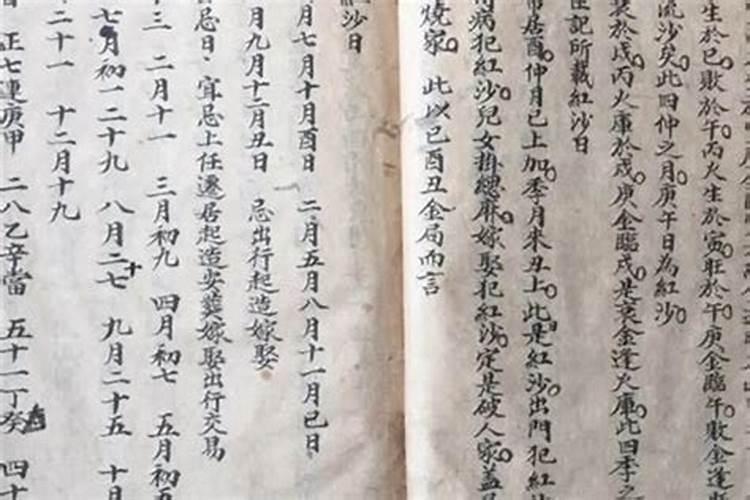 生於巳敗於午丙火生於寅旺於午庚金臨午敗金逢
流沙矣此四仲之月庚午日為紅沙
於戌丙火庫於戌庚金臨戌是衰金逢火庫此四季之
記所載紅沙日
居酉仲月已上加季月未丑上此是紅沙出門犯紅
病犯紅沙兒女掛緦麻嫁娶犯紅沙定是破人家蓋
燒家 此以巳酉丑金局而言
紅沙日
月七月十月酉日 二月五月八月十一月巳日
月九月十二月丑日 忌出行起造嫁娶
忌日 宜忌上任遷居起造安葬嫁娶出行交易
十三 二月十一 三月初九 四月初七 五月初五
七月初一二十九 八月二十七 九月二十五 十月
二十一 十二月十九
正七連庚甲 二八乙辛當 五十一丁癸 四十